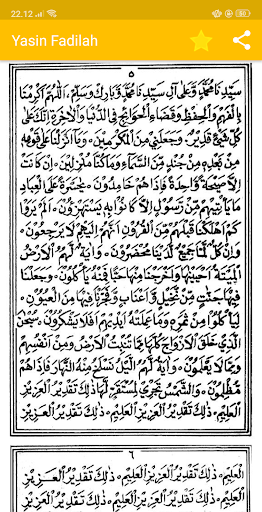 22.12
Yasin Fadilah
٥
سَيِّدِنَا مُحَمَّدٍ وَعَلَىٰ آلِ سَيِّدِنَا مُحَمَّدٍ وَبَارِكْ وَسَلِّمْ. اَللّٰهُمَّ أَكْرِمْنَا
بِالْفَهْمِ وَالْحِفْظِ وَقَضَاءِ الْحَوَائِجِ فِي الدُّنْيَا وَالْآخِرَةِ إِنَّكَ عَلَىٰ
كُلِّ شَيْءٍ قَدِيْرٌ. وَجَعَلَنِي مِنَ الْمُكْرَمِينَ. وَمَا أَنْزَلْنَا عَلَىٰ قَوْمِهِ
مِنْ بَعْدِهِ مِنْ جُنْدٍ مِنَ السَّمَاءِ وَمَا كُنَّا مُنْزِلِينَ. إِنْ كَانَتْ
إِلَّا صَيْحَةً وَاحِدَةً فَإِذَا هُمْ خَامِدُونَ. يَا حَسْرَةً عَلَى الْعِبَادِ
مَا يَأْتِيهِمْ مِنْ رَسُولٍ إِلَّا كَانُوا بِهِ يَسْتَهْزِءُونَ. أَلَمْ يَرَوْا
كَمْ أَهْلَكْنَا قَبْلَهُمْ مِنَ الْقُرُونِ أَنَّهُمْ إِلَيْهِمْ لَا يَرْجِعُونَ.
وَإِنْ كُلٌّ لَمَّا جَمِيعٌ لَدَيْنَا مُحْضَرُونَ. وَآيَةٌ لَهُمُ الْأَرْضُ
الْمَيْتَةُ أَحْيَيْنَاهَا وَأَخْرَجْنَا مِنْهَا حَبًّا فَمِنْهُ يَأْكُلُونَ. وَجَعَلْنَا
فِيهَا جَنَّاتٍ مِنْ نَخِيلٍ وَأَعْنَابٍ وَفَجَّرْنَا فِيهَا مِنَ الْعُيُونِ.
لِيَأْكُلُوا مِنْ ثَمَرِهِ وَمَا عَمِلَتْهُ أَيْدِيهِمْ أَفَلَا يَشْكُرُونَ. سُبْحَانَ
الَّذِي خَلَقَ الْأَزْوَاجَ كُلَّهَا مِمَّا تُنْبِتُ الْأَرْضُ وَمِنْ أَنْفُسِهِمْ
وَمِمَّا لَا يَعْلَمُونَ. وَآيَةٌ لَهُمُ اللَّيْلُ نَسْلَخُ مِنْهُ النَّهَارَ فَإِذَا هُمْ
مُظْلِمُونَ. وَالشَّمْسُ تَجْرِي لِمُسْتَقَرٍّ لَهَا ذَٰلِكَ تَقْدِيرُ الْعَزِيزِ
الْعَلِيمِ. ذَٰلِكَ تَقْدِيرُ الْعَزِيزِ الْعَلِيمِ. ذَٰلِكَ تَقْدِيرُ الْعَزِيزِ
٦
الْعَلِيمِ. ذَٰلِكَ تَقْدِيرُ الْعَزِيزِ الْعَلِيمِ. ذَٰلِكَ تَقْدِيرُ الْعَزِيزِ
الْعَلِيمِ. ذَٰلِكَ تَقْدِيرُ الْعَزِيزِ الْعَلِيمِ. ذَٰلِكَ تَقْدِيرُ الْعَزِيزِ